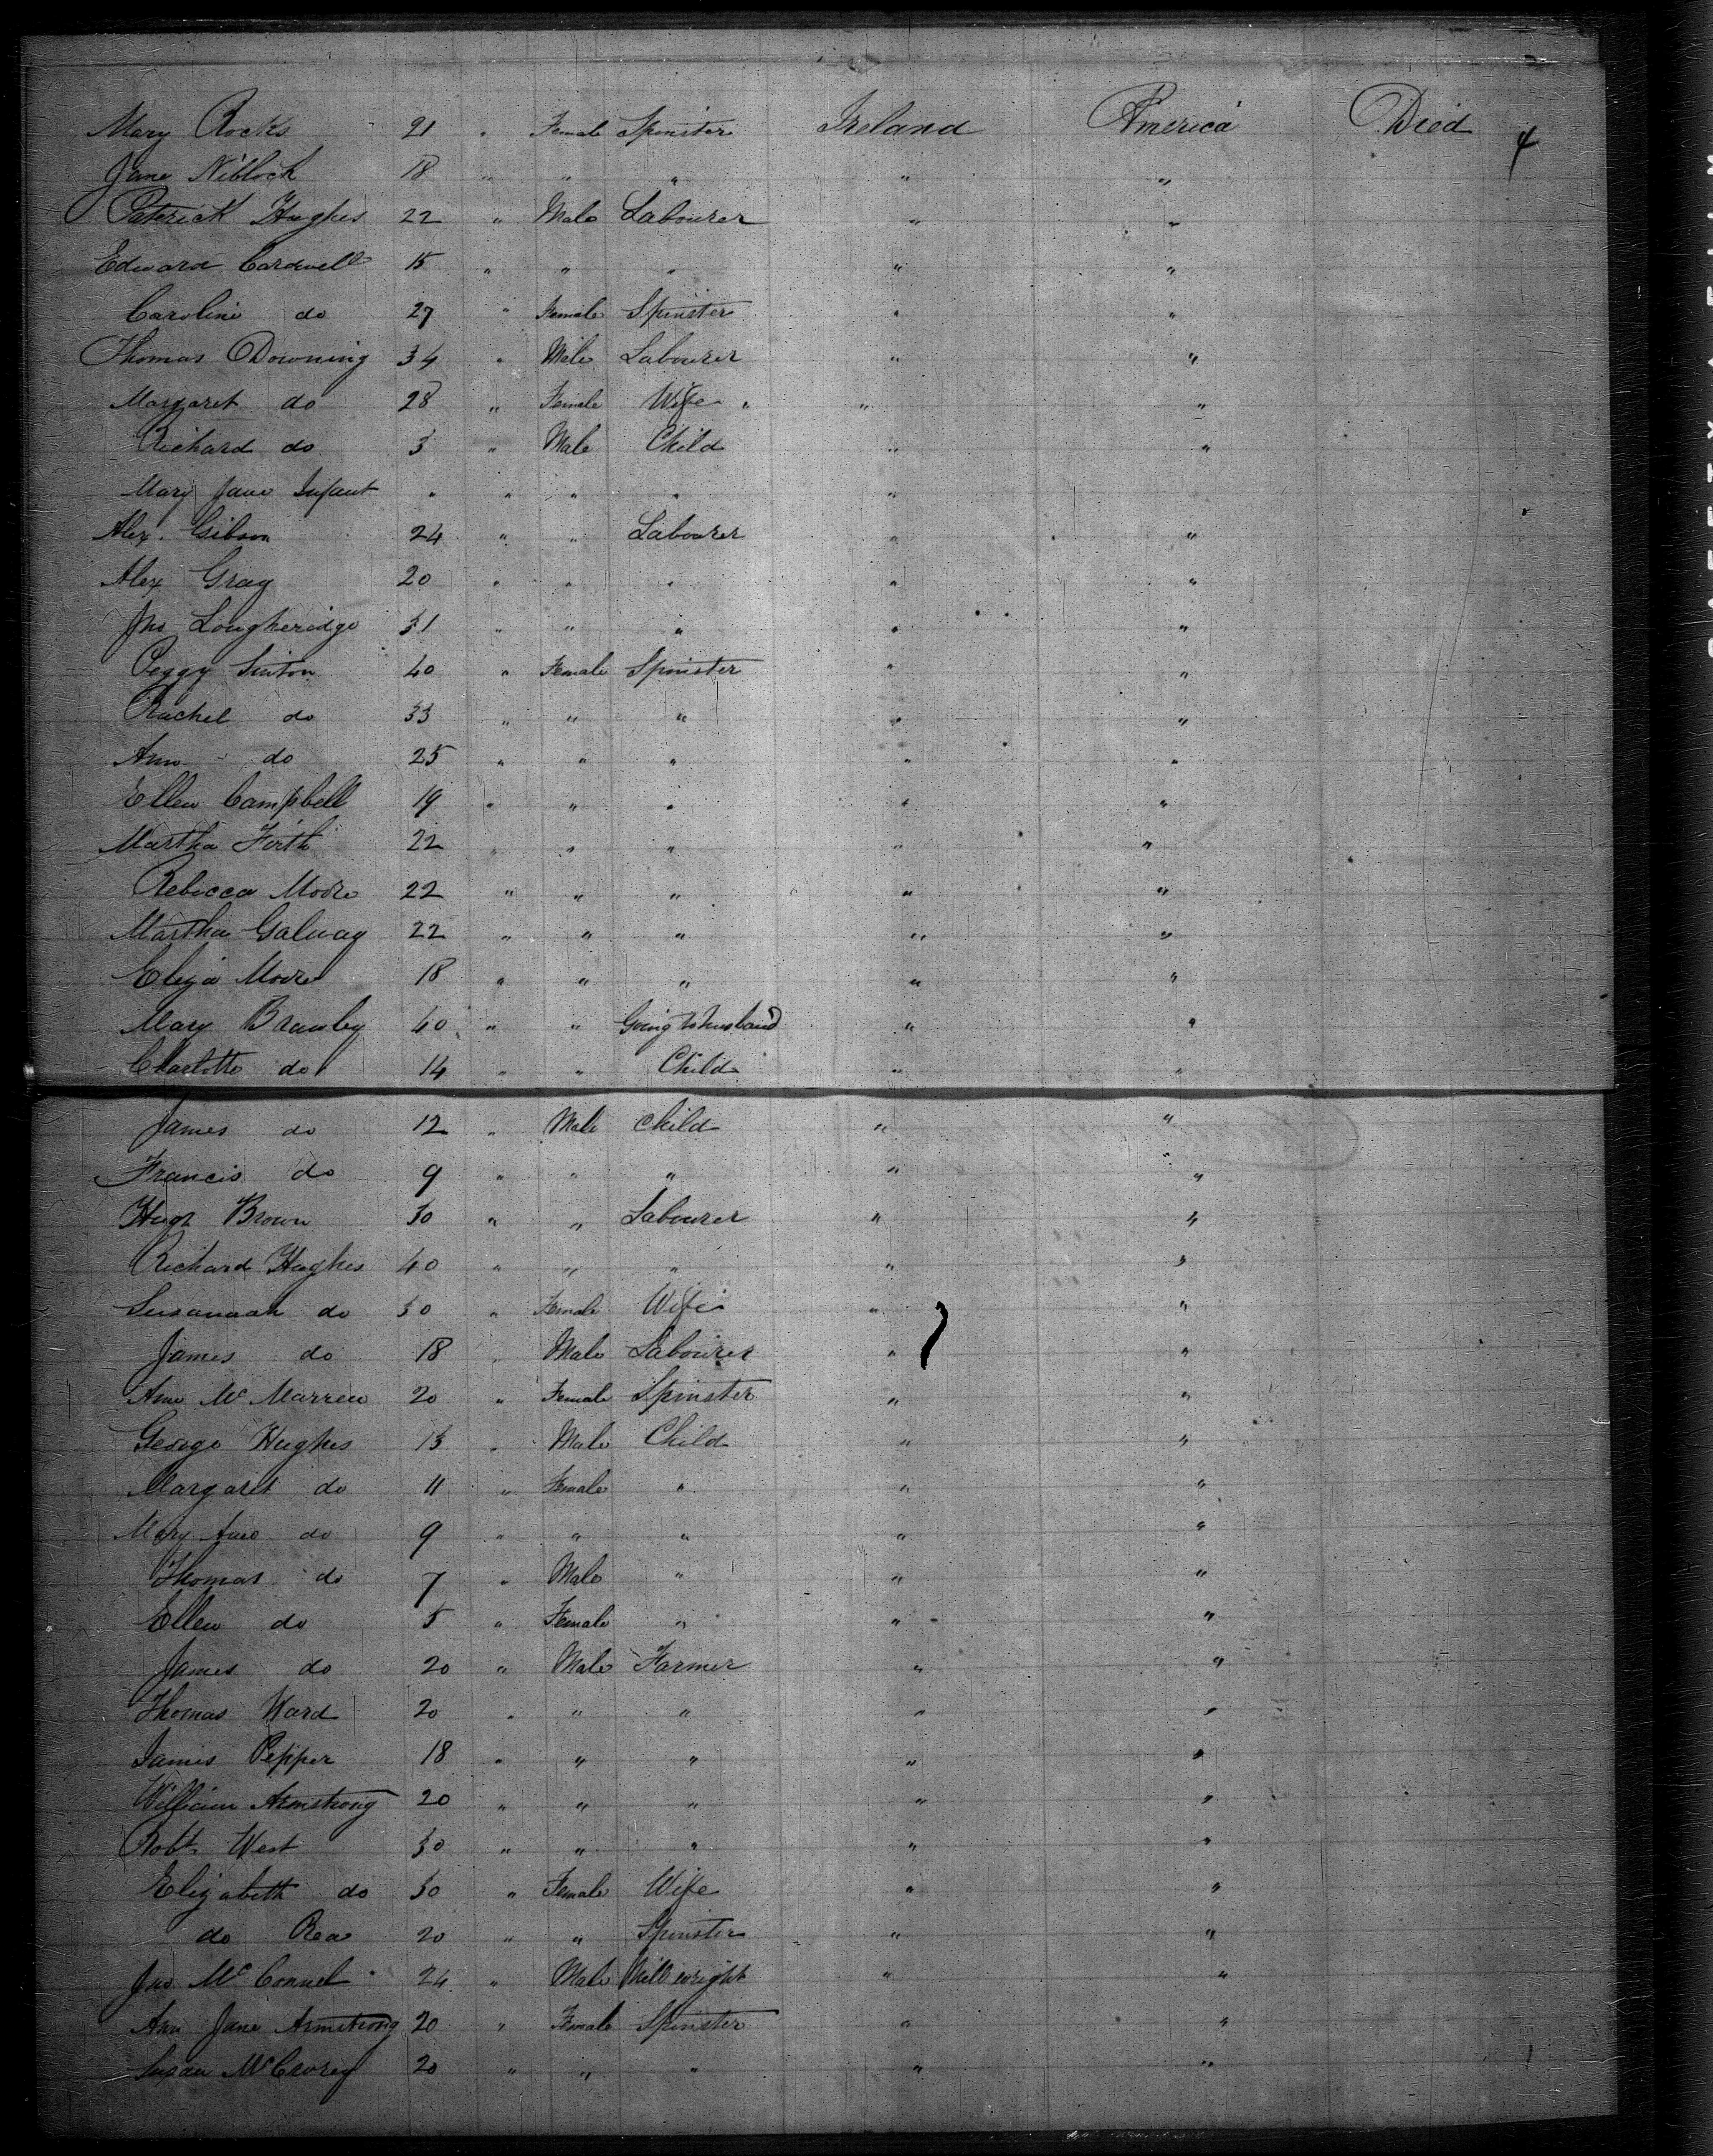 Mary Rocks 21 " Female Spinster Ireland America Died 4
Jane Niblock 18 " " " " "
Paterick Hughes 22 " Male Labourer " "
Edward Cardwell 15 " " " " "
Caroline do 27 " Female Spinster " "
Thomas Downing 34 " Male Labourer " "
Margaret do 28 " Female Wife " " "
Richard do 3 " Male Child " "
Mary Jane Infant " " " " "
Alex. Gibson 24 " " Labourer " "
Alex Gray 20 " " " " "
Jno Lougheridge 31 " " " " "
Peggy Sinton 40 " Female Spinster " "
Rachel do 33 " " " " "
Ann do 25 " " " " "
Ellen Campbell 19 " " " " "
Martha Firth 22 " " " " "
Rebecca Moore 22 " " " " "
Martha Galway 22 " " " " "
Eliza Moore 18 " " " " "
Mary Brawley 40 " " Going to husband " "
Charlotte do 14 " " Child " "
James do 12 " Male Child " "
Francis do 9 " " " " "
Hugh Brown 30 " " Labourer " "
Richard Hughes 40 " " " " "
Susanaah do 30 " Female Wife " "
James do 18 " Male Labourer " "
Ann Mc Marren 20 " Female Spinster " "
George Hughes 13 " Male Child " "
Margaret do 11 " Female " " "
Mary Ann do 9 " " " " "
Thomas do 7 " Male " " "
Ellen do 5 " Female " " "
James do 20 " Male Farmer " "
Thomas Ward 20 " " " " "
James Pepper 18 " " " " "
William Armstrong 20 " " " " "
Robt West 30 " " " " "
Elizabeth do 30 " Female Wife " "
do Rea 20 " " Spinster " "
Jno Mc Connel 24 " Male Mill wright " "
Ann Jane Armstrong 20 " Female Spinster " "
Susan McCrorey 20 " " " " "